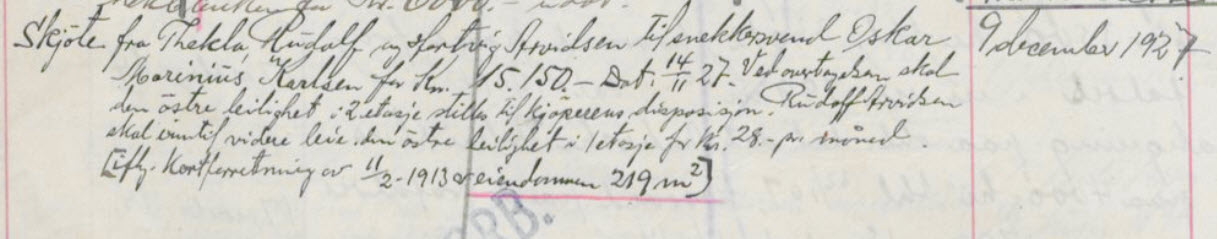 for Kr. 6000.-
Skjöte fra Thekla, Rudolf og Hartvig Arvidsen til snekkersvend Oskar 9 december 1927
Marinius Karlsen for Kr. 15.150.- Dat. 14/11 27. Ved overtagelsen skal
den östre leilighet i 2 etasje stilles til kjöperens disposisjon. Rudolf Arvidsen
skal inntil videre leie den östre leilighet i 1 etasje for Kr. 28.- pr. måned.
[iflg. Kartforretning av 11/2-1913 er eiendommen 219 m²]